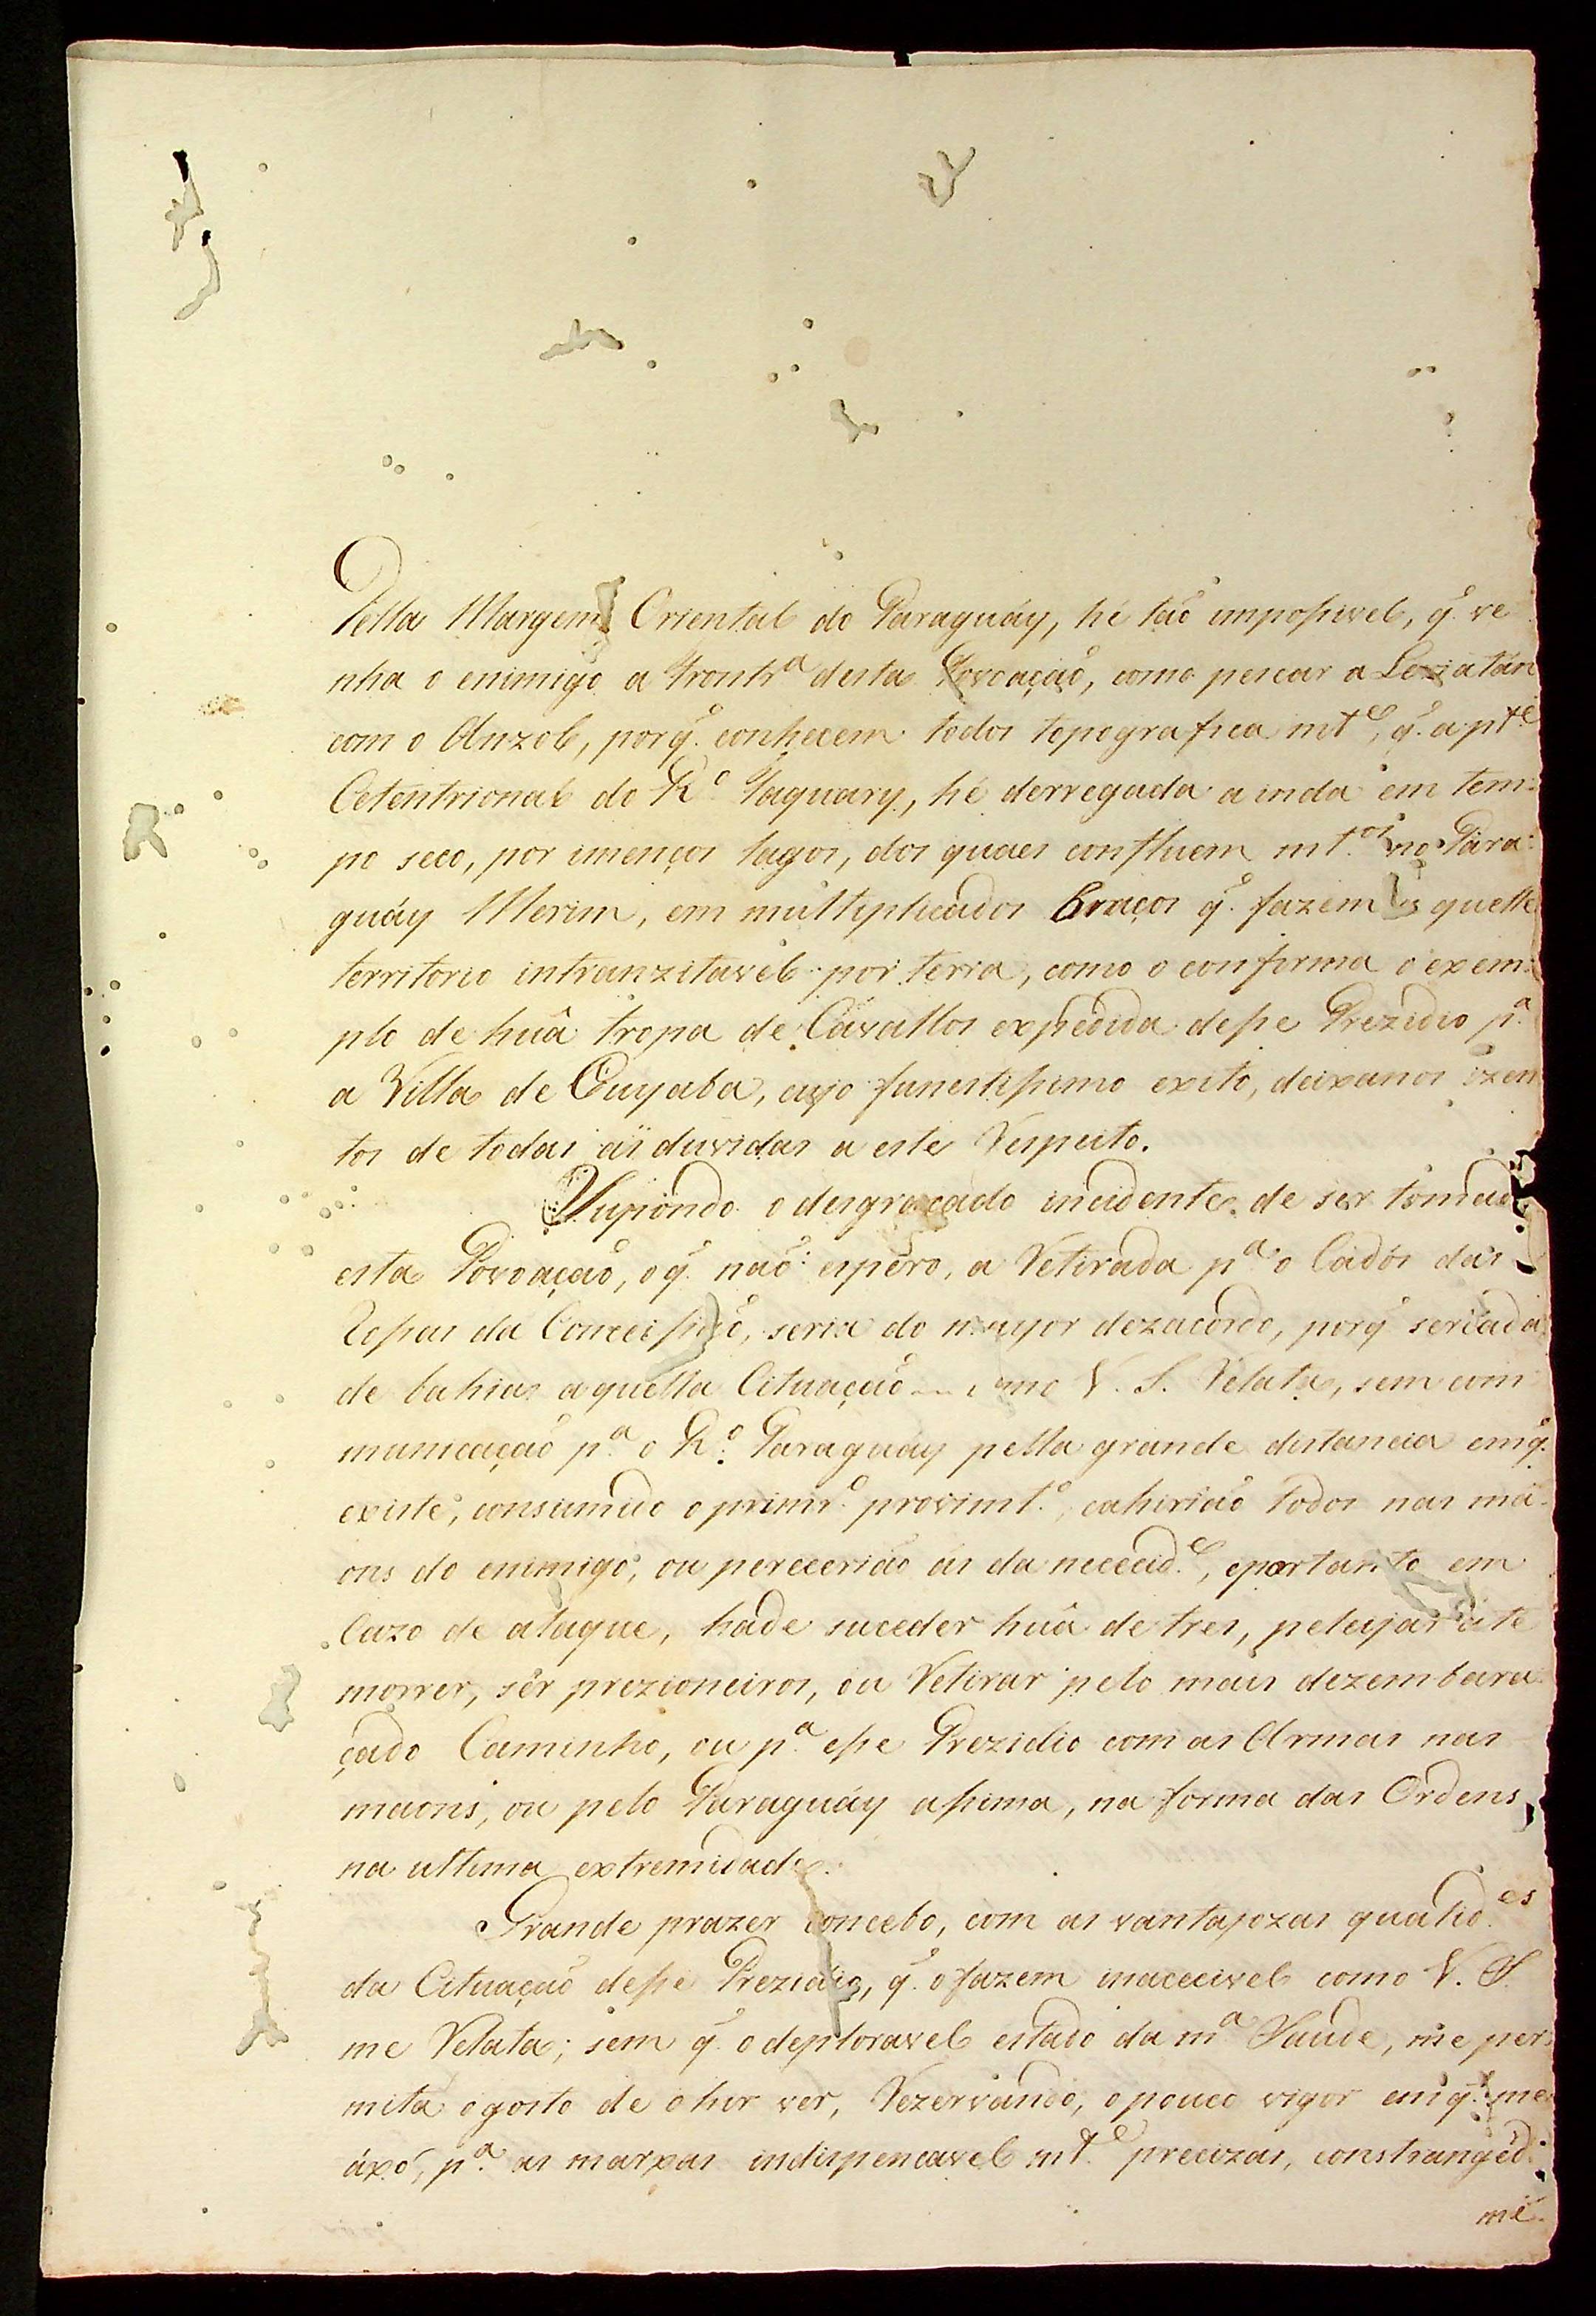 Pella Margem Oriental do Paraguáy, hé taõ impossivel, q.̃ ve
nha o enimigo a Frontrª desta Povoaçaõ, como pescar a Leviatán
com o Anzol, porq.̃ conhecem todos topograficamtᵉ, q.̃ a ptᵉ
Cetentrional do R.º Taquary, hé derregada ainda em tem:
po seco, por imenços lagos, dos quaes confluem mt.ᵒˢ no Para:
guáy Merim, em multiplicados Braços q.̃ fazem aquelle
territorio intranzitavel por terra, como o confirma o exem:
plo de huã tropa de Cavallos expedida desse Prezidio p.ª
a Villa de Cuyaba, cujo funestissimo exito, deixanos izen
tos de todas as duvidas a este Respeito.
Supondo o desgraçado incidente de ser tomada
esta Povoaçaõ, o q.̃ naõ espero, a Retirada p.ª o Lados das
Rossas da Conceissaõ, seria do mayor dezacordo, porq.̃ sercada
de bahias aquella Cituaçaõ como V. S. Relata, sem com
municaçaõ p.ª o R.º Paraguáy pella grande distancia emq.̃
existe, consumido o primr.º provimt.º, cahiriaõ todos nas ma
ons do enimigo, ou pereceriaõ ás da nececid.ᵉ, eportanto em
Cazo de ataque, hade suceder huã de tres, pelejar até
morrer, sêr prezioneiros, ou Retirar pelo mais dezembara
çado Caminho, ou p.ª esse Prezidio com as Armas nas
maons, ou pelo Paraguáy assima, na forma das Ordens,
na ultima extremidade.
Grande prazer concebo, com as vantajozas qualid.ᵉˢ
da Cituaçaõ desse Prezidio, q.̃ o fazem inacecivel como V. S.
me Relata; sem q.̃ o deploravel estado da mª Saude, me per:
mita o gosto de o hir ver, Rezervando, o pouco vigor emq.̃ me
áxo, p.ª as marxas indispencavelmt.ᵉ precizas, constranged.
me